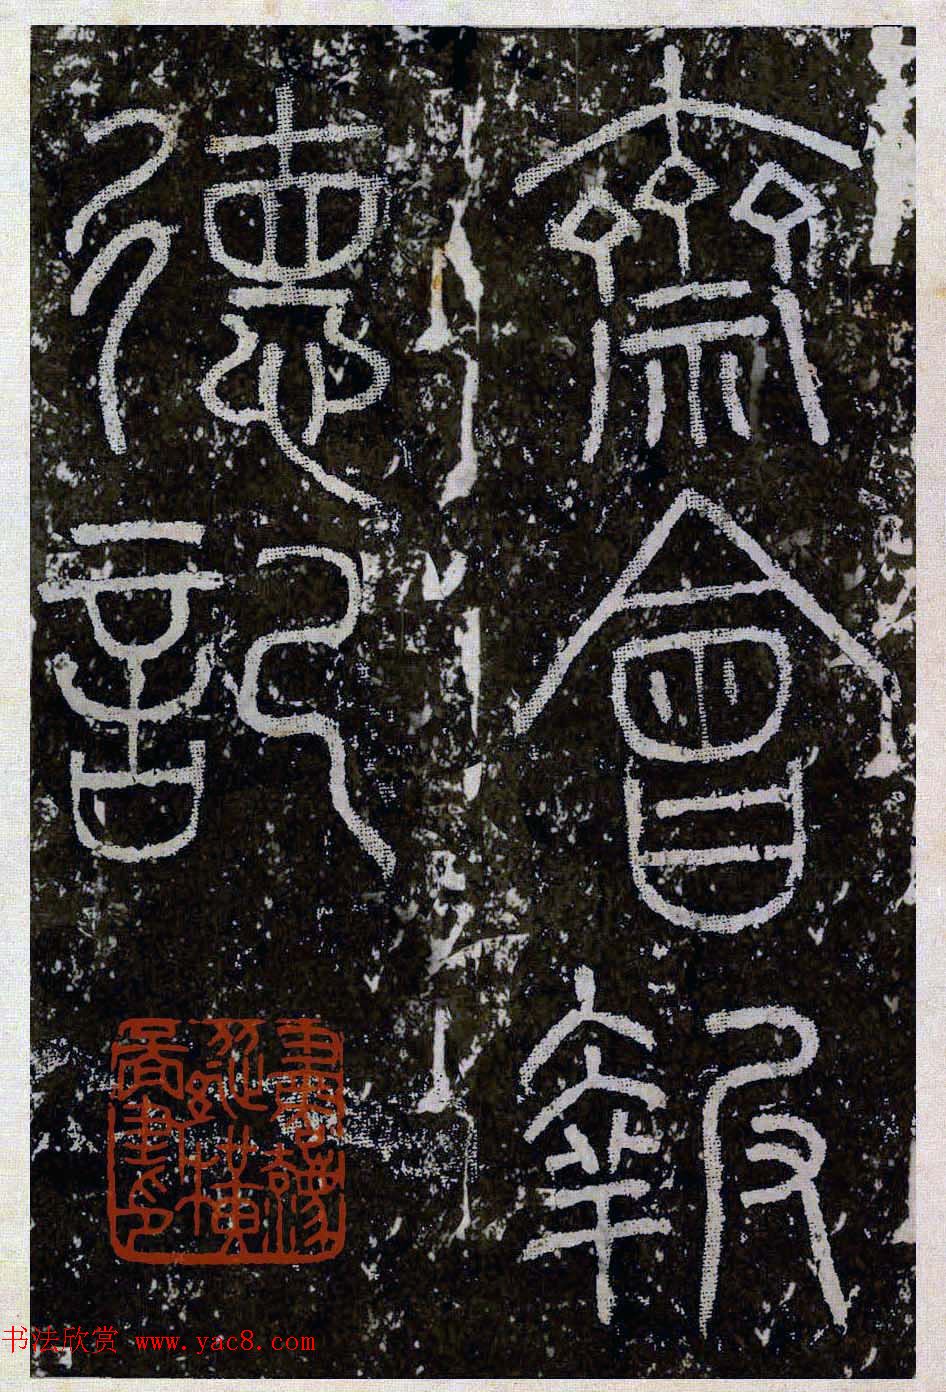 齋會報
德記
书法欣赏 www.yac8.com